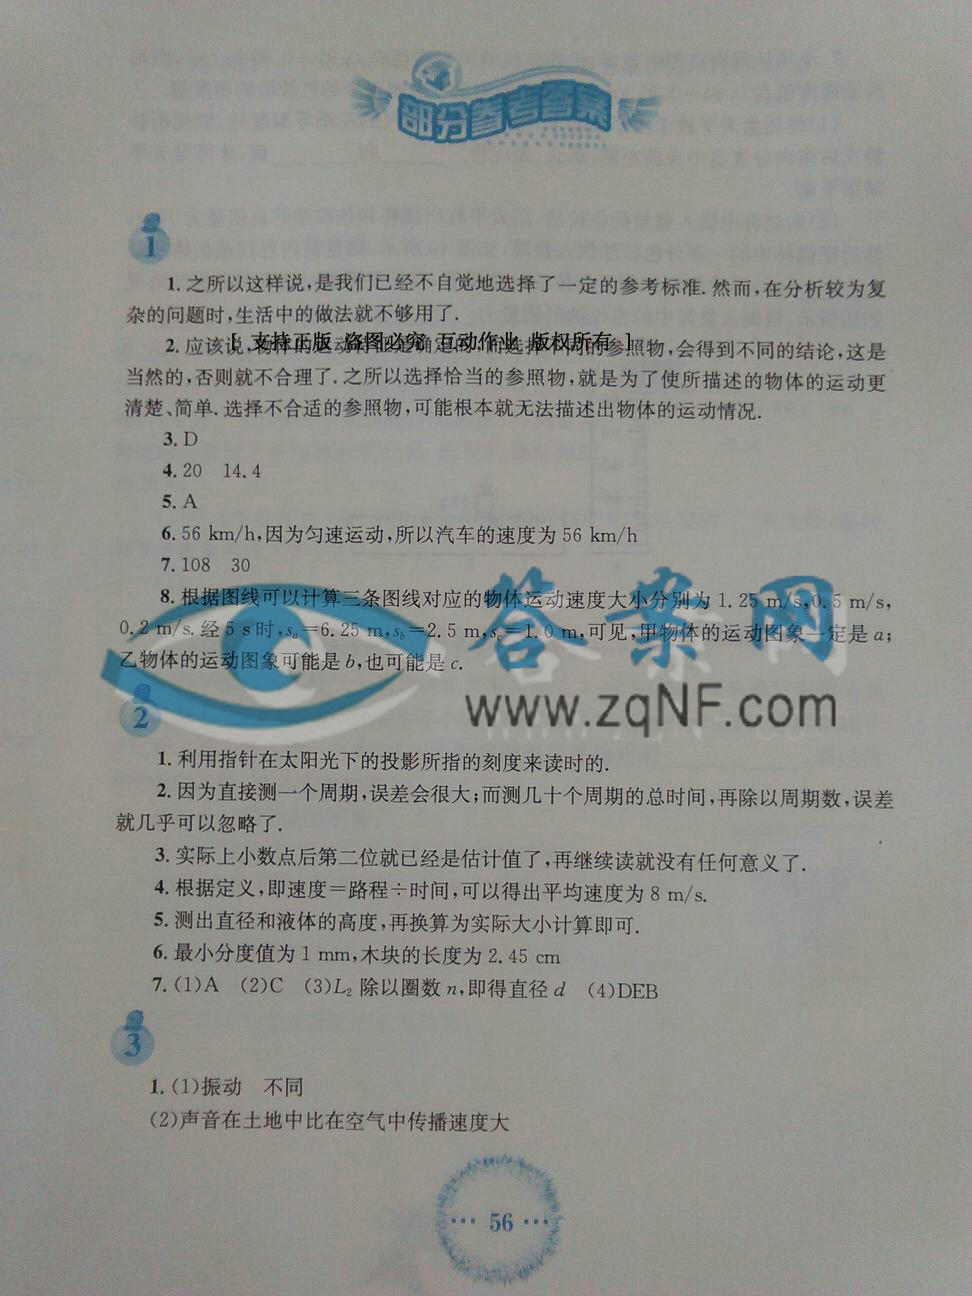 部分参考答案
1
1. 之所以这样说,是我们已经不自觉地选择了一定的参考标准. 然而,在分析较为复
杂的问题时,生活中的做法就不够用了.
[ 支持正版 盗图必究 互动作业 版权所有 ]
2. 应该说,物体的运动 选择不同的参照物,会得到不同的结论,这是
当然的,否则就不合理了. 之所以选择恰当的参照物,就是为了使所描述的物体的运动更
清楚、简单. 选择不合适的参照物,可能根本就无法描述出物体的运动情况.
3. D
4. 20 14.4
5. A
6. 56 km/h,因为匀速运动,所以汽车的速度为 56 km/h
7. 108 30
8. 根据图线可以计算三条图线对应的物体运动速度大小分别为 1.25 m/s,0.5 m/s,
0.2 m/s. 经 5 s 时,sa=6.25 m,sb=2.5 m,sc=1.0 m,可见,甲物体的运动图象一定是 a;
乙物体的运动图象可能是 b,也可能是 c.
答案网
www.zqNF.com
2
1. 利用指针在太阳光下的投影所指的刻度来读时的.
2. 因为直接测一个周期,误差会很大;而测几十个周期的总时间,再除以周期数,误差
就几乎可以忽略了.
3. 实际上小数点后第二位就已经是估计值了,再继续读就没有任何意义了.
4. 根据定义,即速度=路程÷时间,可以得出平均速度为 8 m/s.
5. 测出直径和液体的高度,再换算为实际大小计算即可.
6. 最小分度值为 1 mm,木块的长度为 2.45 cm
7. (1)A (2)C (3)L2 除以圈数 n,即得直径 d (4)DEB
3
1. (1)振动 不同
(2)声音在土地中比在空气中传播速度大
··· 56 ···